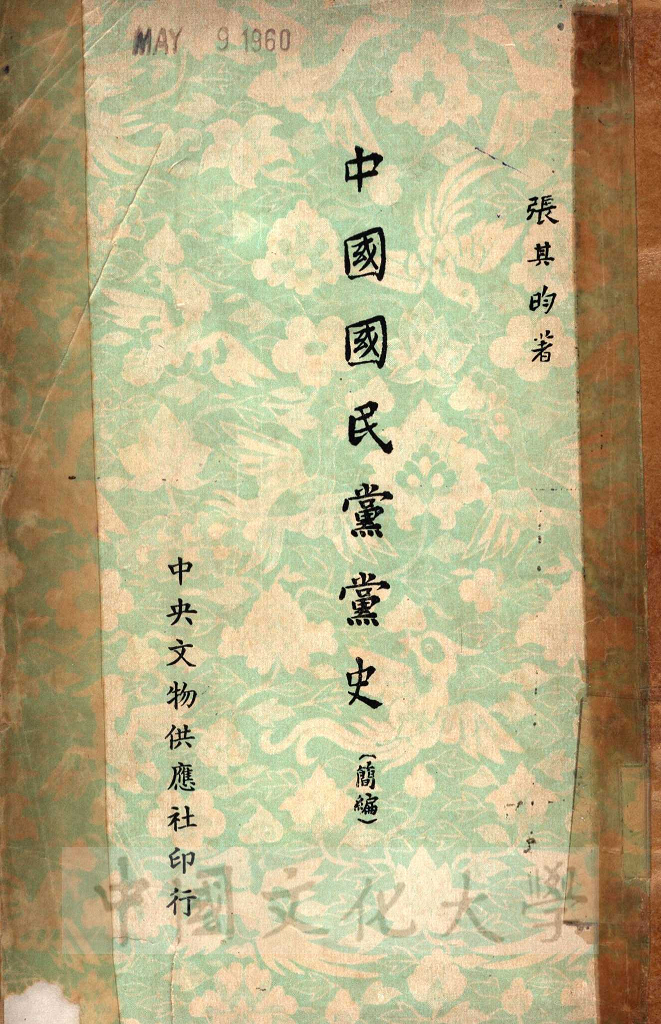 MAY 9 1960
張其昀著
中國國民黨黨史
(簡編)
中央文物供應社印行
中國文化大學